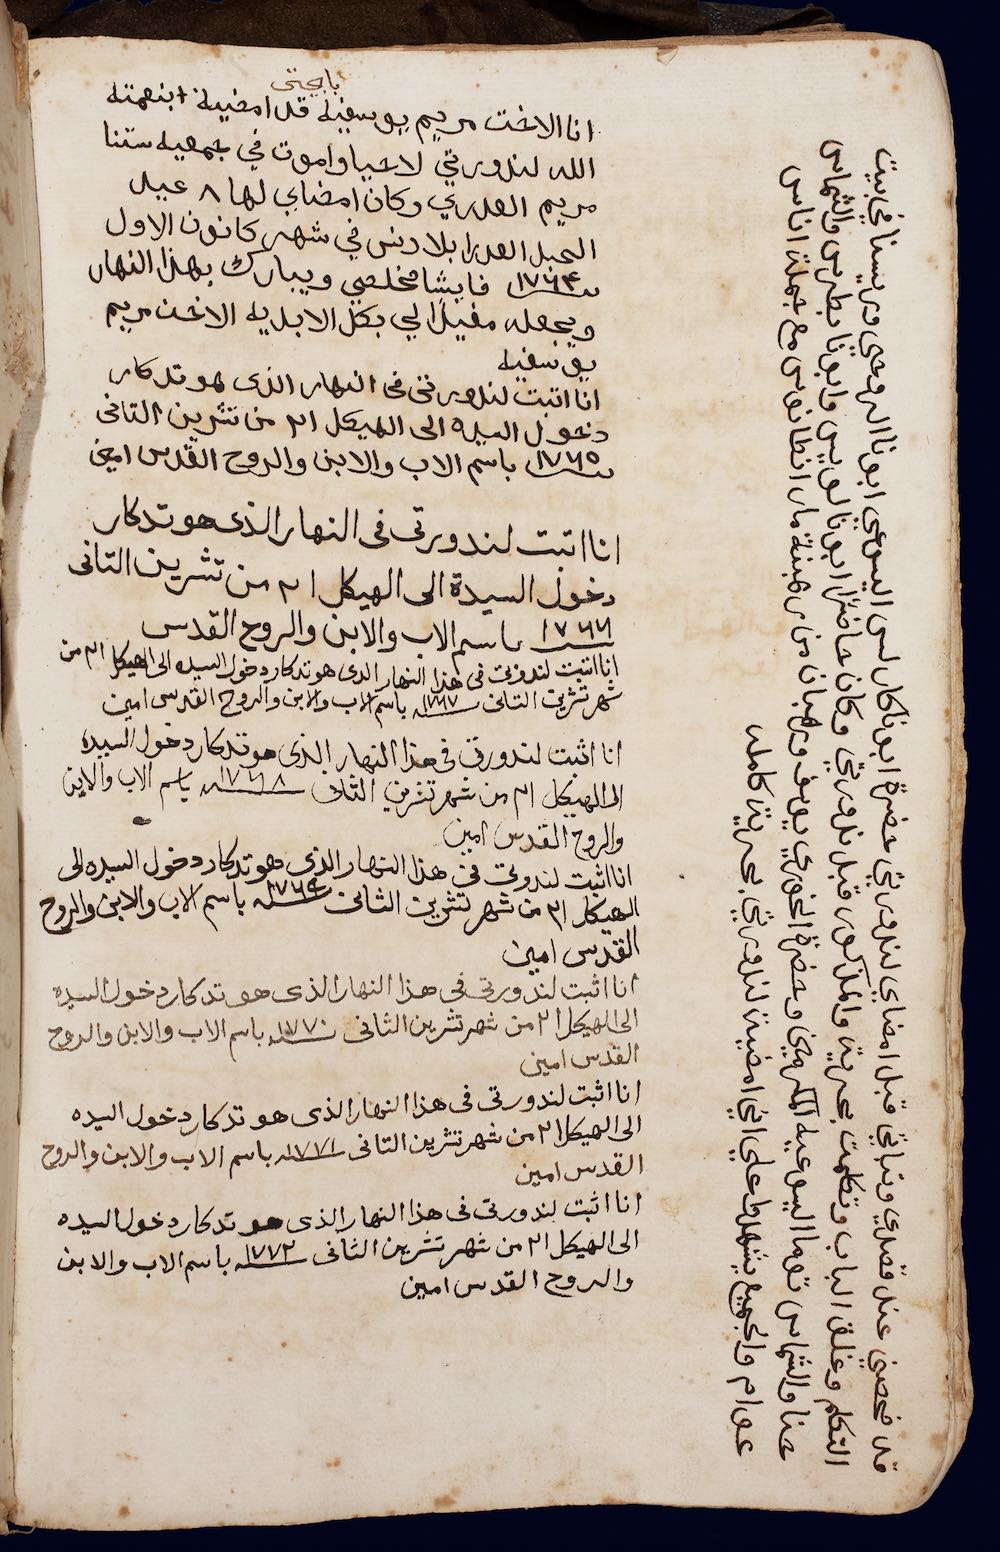 بابجتى
انا الاخت مريم يوسفيه قد امضيت ابنعمته
الله لندورتي لاحيا واموت في جمعيه ستنا
مريم العدري وكان امضاي لها ٨ عيد
الحبل العدرا بلا دنس في شهر كانون الاول
سنة ١٧٦٤ فايشا مخلصي ويبارك بهذا النهار
ويجعله مفيدًا لي بكل الابديه الاخت مريم
يوسفيه
انا اتبت لندورتى فى النهار الذى هو تدكار
دخول السيده الى الهيكل ٢١ من تشرين التانى
سنة ١٧٦٥ باسم الاب والابن والروح القدس امين
انا اتبت لندورتى فى النهار الذى هو تدكار
دخول السيدة الى الهيكل ٢١ من تشرين التانى
سنة ١٧٦٦ باسم الاب والابن والروح القدس
انا اتبت لندورتى فى هذا النهار الدى هو تدكار دخول السيده الى الهيكل ٢١ من
شهر تشرين التانى سنة ١٧٦٧ باسم الاب والابن والروح القدس امين
انا اثبت لندورتى فى هذا النهار الذى هو تدكار دخول السيده
الى الهيكل ٢١ من شهر تشرين الثانى سنة ١٧٦٨ باسم الاب والابن
والروح القدس امين
انا اثبت لندورتى فى هذا النهار الذى هو تدكار دخول السيده الى
الهيكل ٢١ من شهر تشرين الثانى سنة ١٧٦٩ باسم الاب والابن والروح
القدس امين
انا اثبت لندورتى فى هذا النهار الذى هو تدكار دخول السيده
الى الهيكل ٢١ من شهر تشرين الثانى سنة ١٧٧٠ باسم الاب والابن والروح
القدس امين
انا اثبت لندورتى فى هذا النهار الذى هو تدكار دخول السيده
الى الهيكل ٢١ من شهر تشرين التانى سنة ١٧٧١ باسم الاب والابن والروح
القدس امين
انا اثبت لندورتى فى هذا النهار الذى هو تدكار دخول السيده
الى الهيكل ٢١ من شهر تشرين الثانى سنة ١٧٧٢ باسم الاب والابن
والروح القدس امين
قد فحصني عند قصدي وتباتي قبل امضاي لندورتي حضرة ابونا كارلس اليسوعي ابونا الروحي وريسنا في بيت
التكلم وغلق الباب وتكلمت بحريت والمذكور قبل ندورتي وكان حاضرًا ابونا لويس وابونا بطرس والشماس
حنا والشماس توما اليسوعيه المكرمين وحضرة الخوري يوسف ورهبان من رهبنة مار انطانوس مع جملت اناس
عوام والجميع يشهدوا علي اني امضيت لندورتي بحريت كامله